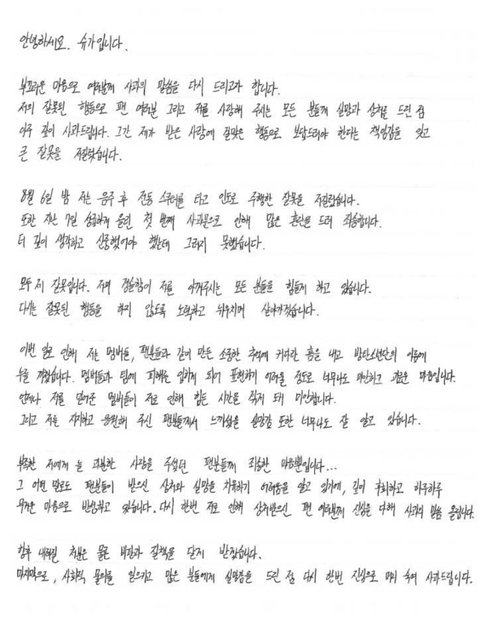 안녕하세요. 슈가입니다.
부끄러운 마음으로 여러분께 사과의 말씀을 다시 드리고자 합니다.
저의 잘못된 행동으로 팬 여러분 그리고 저를 사랑해 주시는 모든 분들께 실망과 상처를 드린 점
아주 깊이 사과드립니다. 그간 제가 받은 사랑에 걸맞은 행동으로 보답드려야 한다는 책임감을 잊고
큰 잘못을 저질렀습니다.
8월 6일 밤 저는 음주 후 전동 스쿠터를 타고 인도로 주행한 잘못을 저질렀습니다.
또한 지난 7일 성급하게 올린 첫 번째 사과문으로 인해 많은 혼란을 드려 죄송합니다.
더 깊이 생각하고 신중했어야 했는데 그러지 못했습니다.
모두 제 잘못입니다. 저의 경솔함이 저를 아껴주시는 모든 분들을 힘들게 하고 있습니다.
다시는 잘못된 행동을 하지 않도록 노력하고 뉘우치며 살아가겠습니다.
이번 일로 인해 저는 멤버들, 팬분들과 같이 만든 소중한 추억에 커다란 흠을 내고 방탄소년단의 이름에
누를 끼쳤습니다. 멤버들과 팀에 피해를 입히게 되어 표현하기 어려울 정도로 너무나도 미안하고 괴로운 마음입니다.
언제나 저를 믿어준 멤버들이 저로 인해 힘든 시간을 겪게 돼 미안합니다.
그리고 저를 지지하고 응원해 주신 팬분들께서 느끼셨을 실망감 또한 너무나도 잘 알고 있습니다.
부족한 저에게 늘 과분한 사랑을 주셨던 팬분들께 죄송한 마음뿐입니다...
그 어떤 말로도 팬분들이 받으신 상처와 실망을 치유하기 어려움을 알고 있기에, 깊이 후회하고 하루하루
무거운 마음으로 반성하고 있습니다. 다시 한번 저로 인해 상처받으신 팬 여러분께 진심을 다해 사과의 말씀 올립니다.
향후 내려질 처분은 물론 비판과 질책을 달게 받겠습니다.
마지막으로, 사회적 물의를 일으키고 많은 분들에게 실망감을 드린 점 다시 한번 진심으로 머리 숙여 사과드립니다.